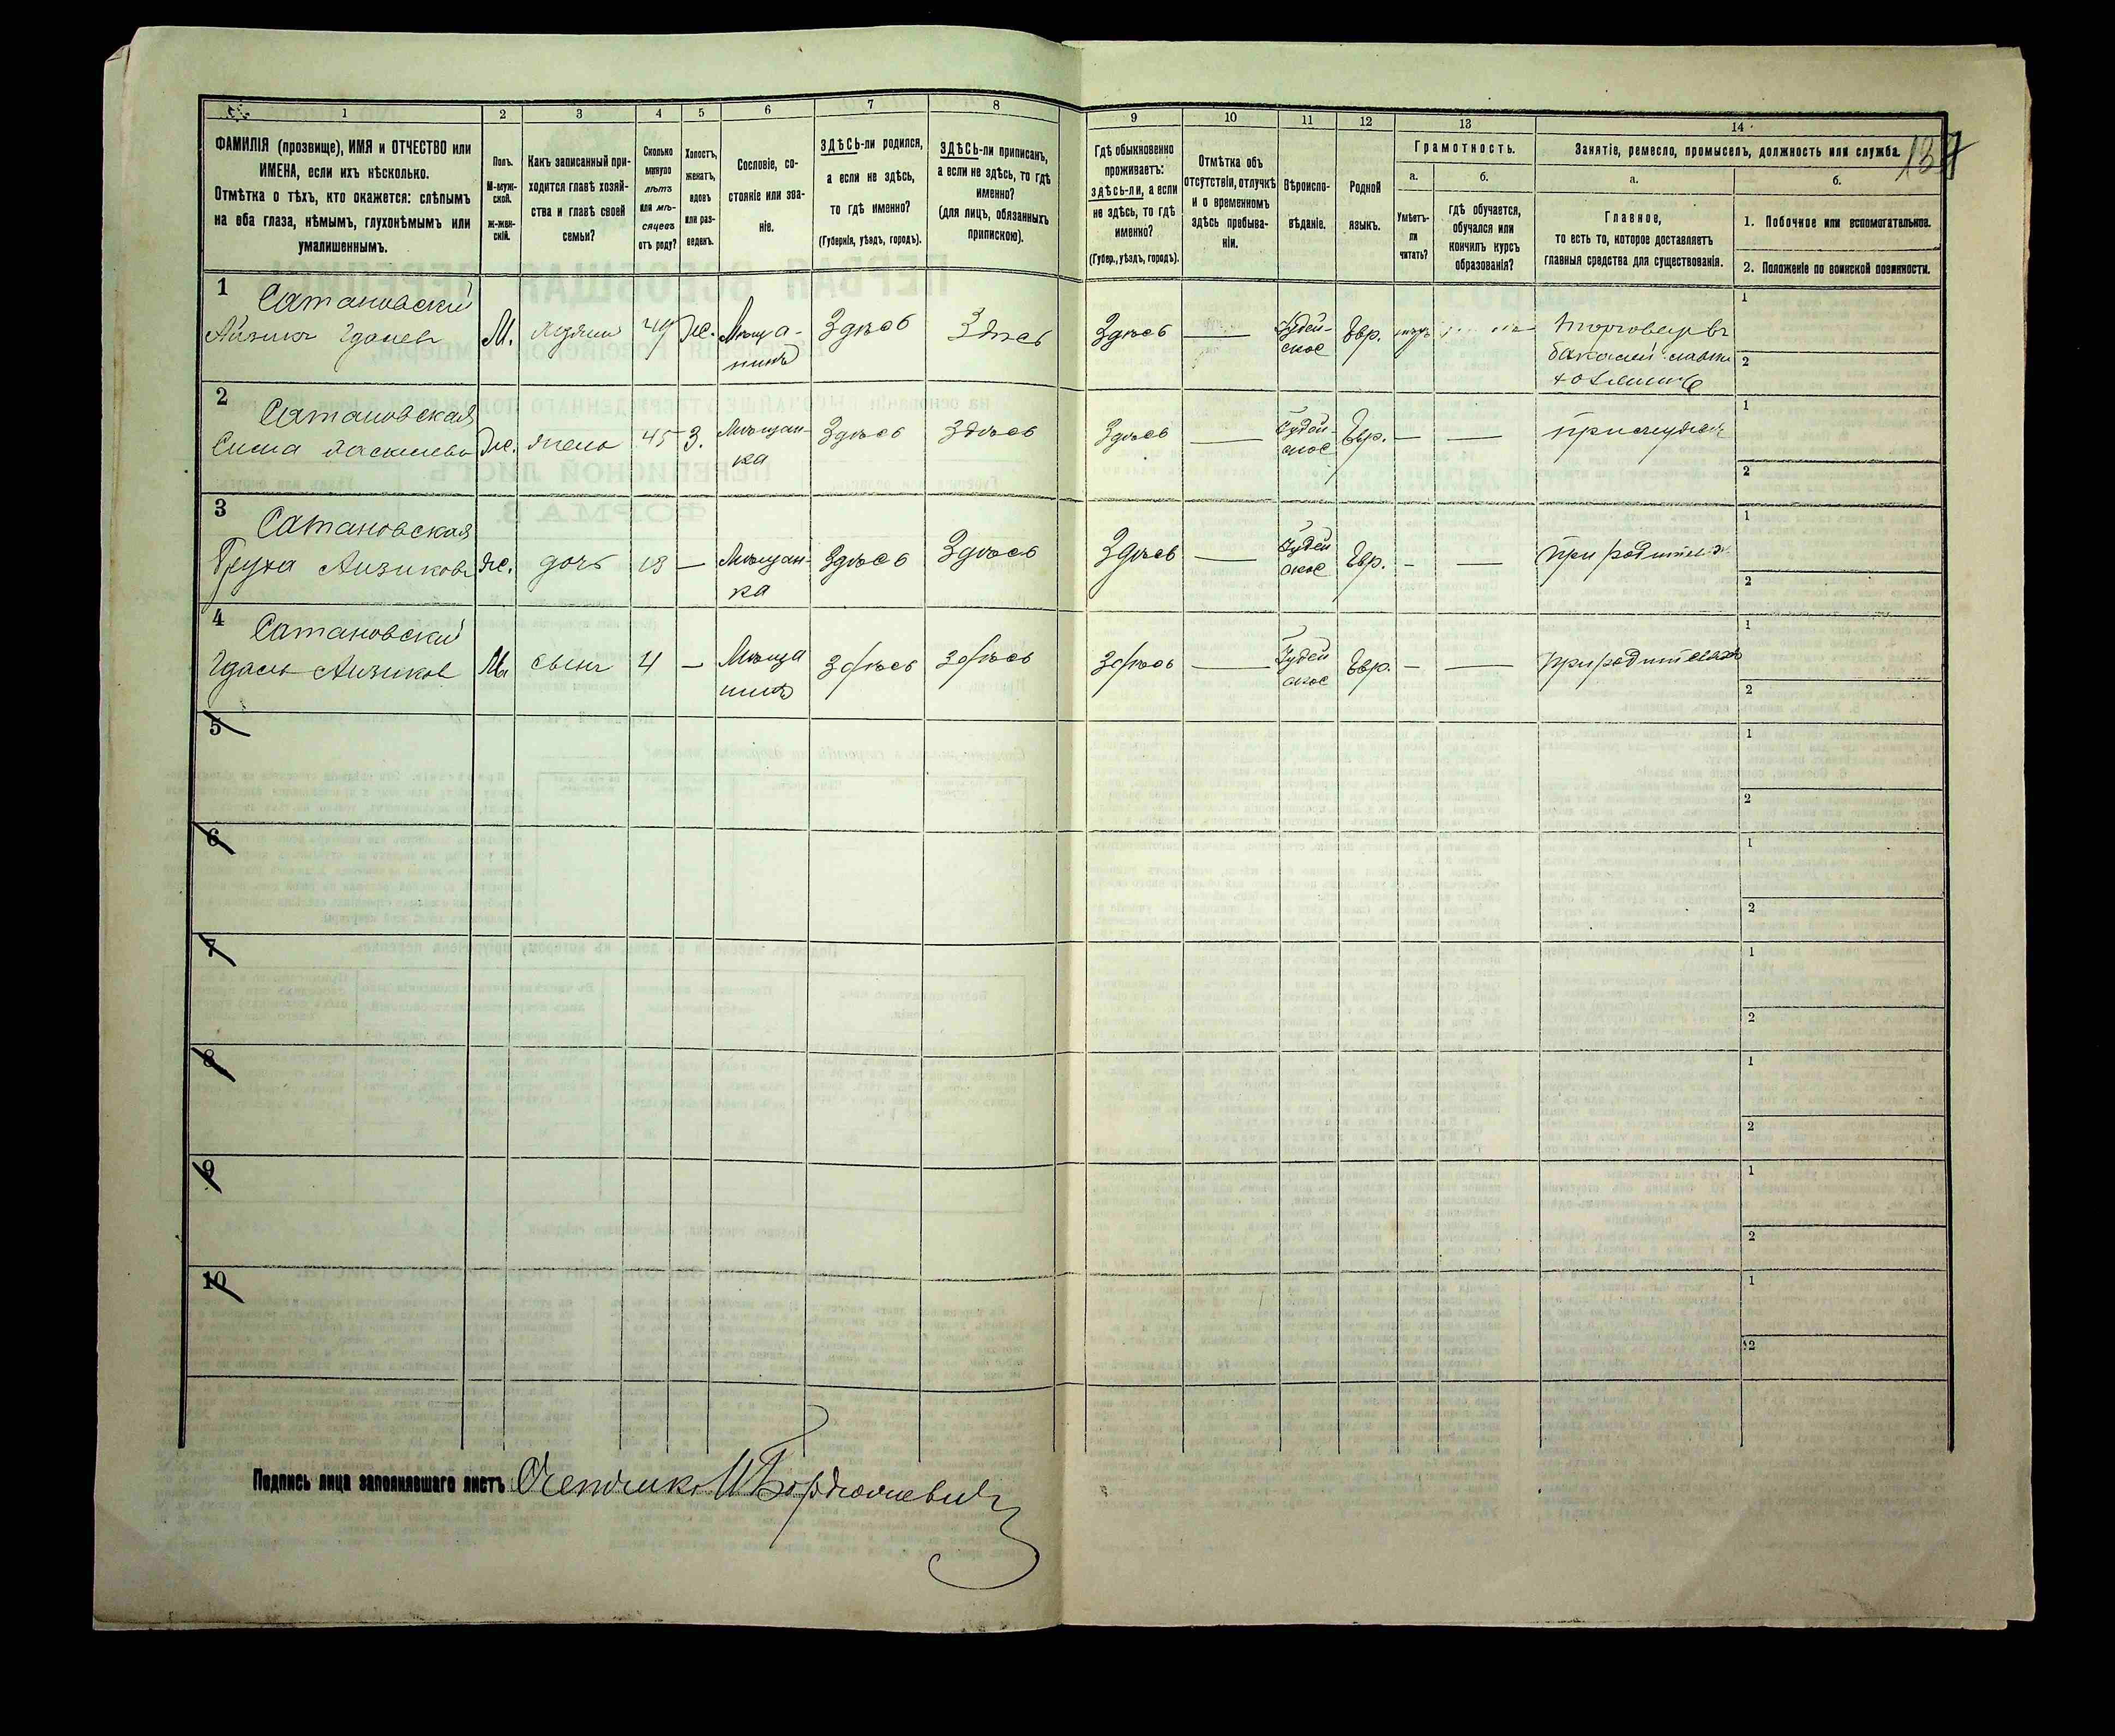 1 2 3 4 5 6 7 8 9 10 11 12 13 14
137
ФАМИЛІЯ (прозвище), ИМЯ и ОТЧЕСТВО или
ИМЕНА, если ихъ нѣсколько.
Отмѣтка о тѣхъ, кто окажется: слѣпымъ
на оба глаза, нѣмымъ, глухонѣмымъ или
умалишеннымъ.
Полъ.
М-муж-
ской.
ж-жен-
скій.
Какъ записанный при-
ходится главѣ хозяй-
ства и главѣ своей
семьи?
Сколько
минуло
лѣтъ
или мѣ-
сяцевъ
отъ роду?
Холостъ,
женатъ,
вдовъ
или раз-
веденъ.
Сословіе, со-
стояніе или зва-
ніе.
ЗДѢСЬ-ли родился,
а если не здѣсь,
то гдѣ именно?
(Губернія, уѣздъ, городъ).
ЗДѢСЬ-ли приписанъ,
а если не здѣсь, то гдѣ
именно?
(для лицъ, обязанныхъ
припискою).
Гдѣ обыкновенно
проживаетъ:
здѣсь-ли, а если
не здѣсь, то гдѣ
именно?
(Губер., уѣздъ, городъ).
Отмѣтка объ
отсутствіи, отлучкѣ
и о временномъ
здѣсь пребыва-
ніи.
Вѣроиспо-
вѣданіе.
Родной
языкъ.
Грамотность.
а.
Умѣетъ-
ли
читать?
б.
гдѣ обучается,
обучался или
кончилъ курсъ
образованія?
Занятіе, ремесло, промыселъ, должность или служба.
а.
Главное,
то есть то, которое доставляетъ
главныя средства для существованія.
б.
1. Побочное или вспомогательное.
2. Положеніе по воинской повинности.
1 Сатановскій
М. 49 Ж. Мѣща-
нинъ
Здѣсь Здѣсь Здѣсь — Іудей-
ское
Евр.
1
2
2 Сатановская
Ж. жена 45 З. Мѣщан-
ка
Здѣсь Здѣсь Здѣсь — Іудей-
ское
Евр. — —
1
2
3 Сатановская
Ж. дочь 18 — Мѣщан-
ка
Здѣсь Здѣсь Здѣсь — Іудей
ское
Евр. — — при родителях
1
2
4 Сатановскій
Айзиков М. сынъ 4 — Мѣща
нинъ
Здѣсь Здѣсь Здѣсь — Іудей
ское
Евр. — — при родителяхъ
1
2
5
1
2
6
1
2
7
1
2
8
1
2
9
1
2
10
1
2
Подпись лица заполнявшаго листъ